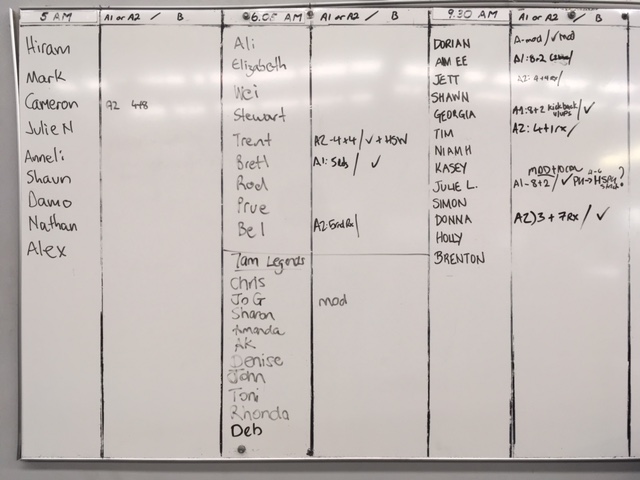 5 AM
A1 or A2 / B
Hiram
Mark
Cameron A2 4+8
Julie N
Anneli
Shaun
Damo
Nathan
Alex
6.05 AM
A1 or A2 / B
Ali
Elizabeth
Wei
Stewart
Trent A2-4+4/ ✓ + HSW
Brett A1: 5rds / ✓
Rod
Prue
Bel
7am Legends
Chris
Jo G mod
Sharon
Amanda
AK
Denise
John
Toni
Rhonda
Deb
9.30 AM
A1 or A2 / B
DORIAN A-mod/ ✓ Mod
AIMEE A1:8+2
JETT A2: 4+4rx/
SHAWN
GEORGIA A1:8+2 Kickback / ✓
TIM A2: 4+1rx/
NIAMH
KASEY
JULIE L. A1-8+2/ ✓
SIMON
DONNA A2)3 + 7Rx / ✓
HOLLY
BRENTON